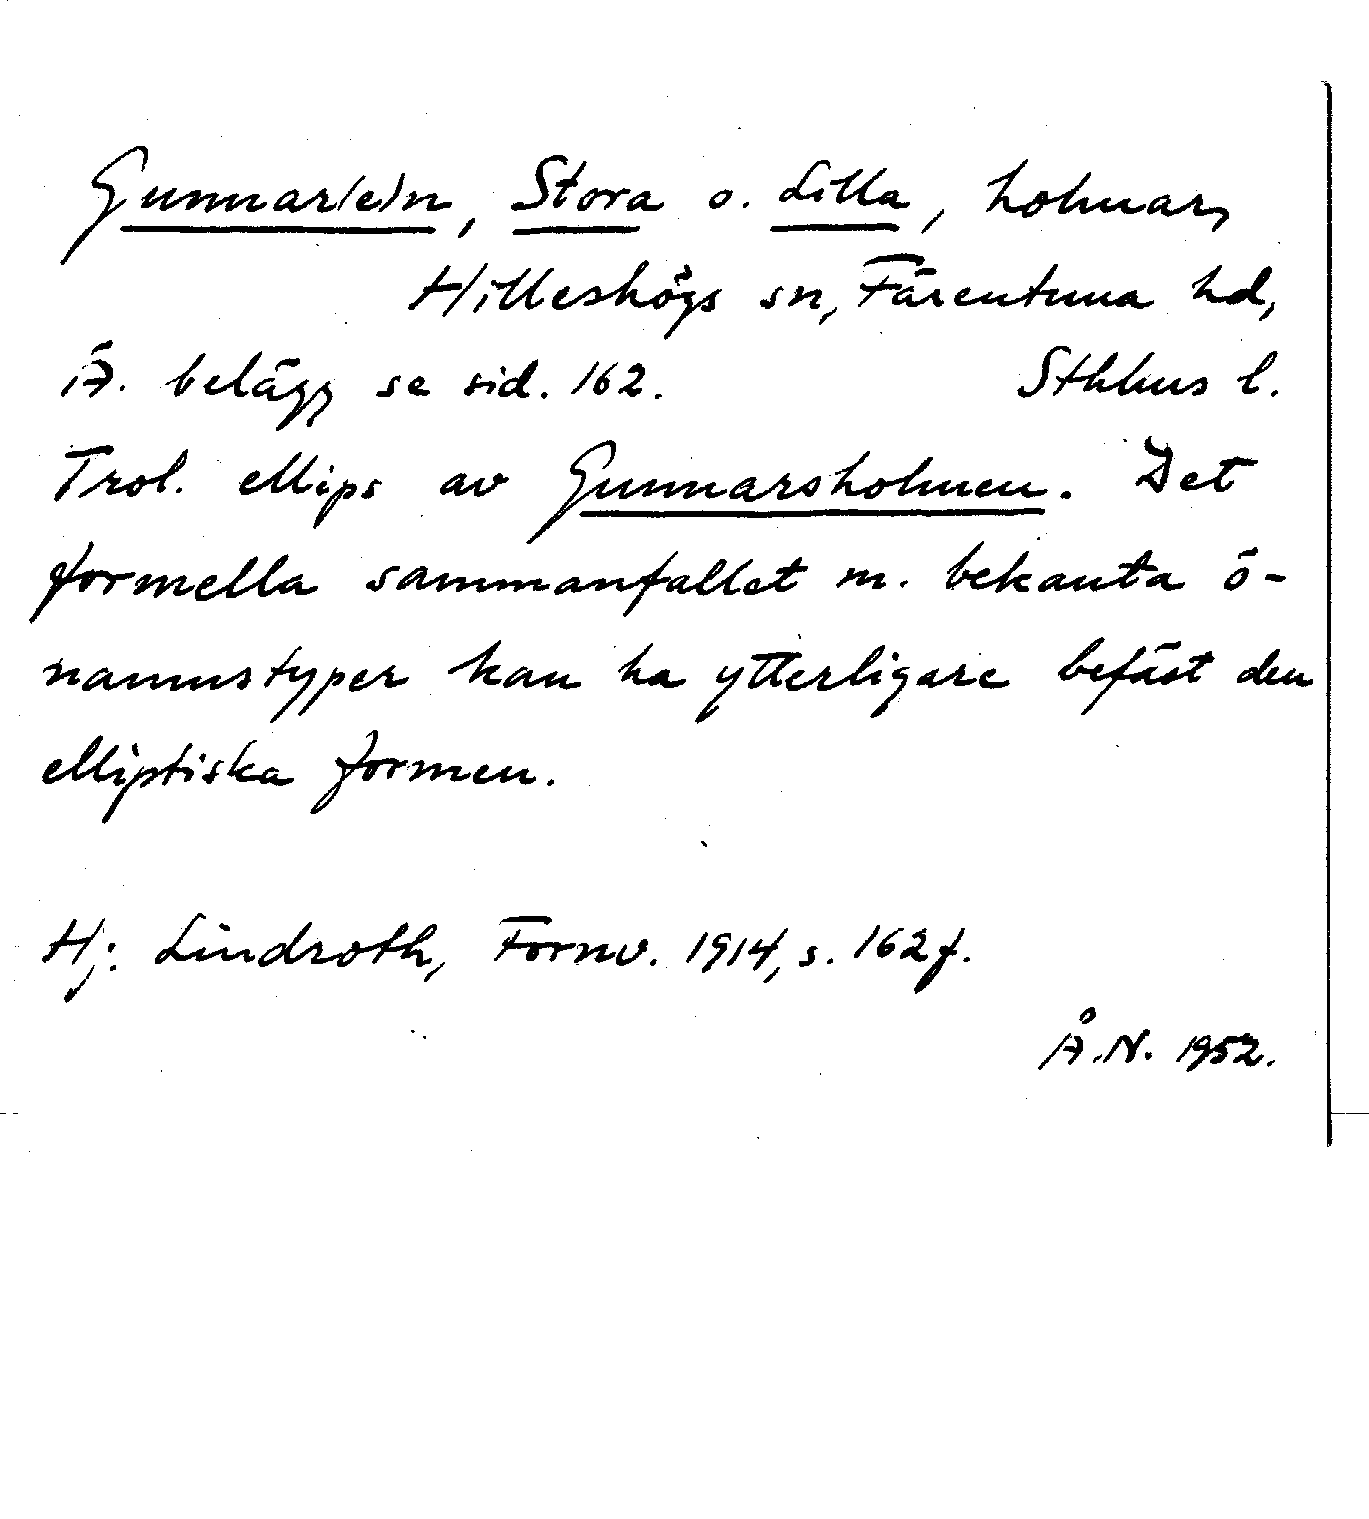 Gunnar(e)n, Stora o. Lilla, holmar,
Hilleshögs sn, Färentuna hd,
Ä. belägg se sid. 162. Sthlms l.
Trol. ellips av Gunnarsholmen. Det
formella sammanfallet m. bekanta ö-
namnstyper kan ha ytterligare befäst den
elliptiska formen.
Hj. Lindroth, Fornv. 1914, s. 162 f.
Å.N. 1952.